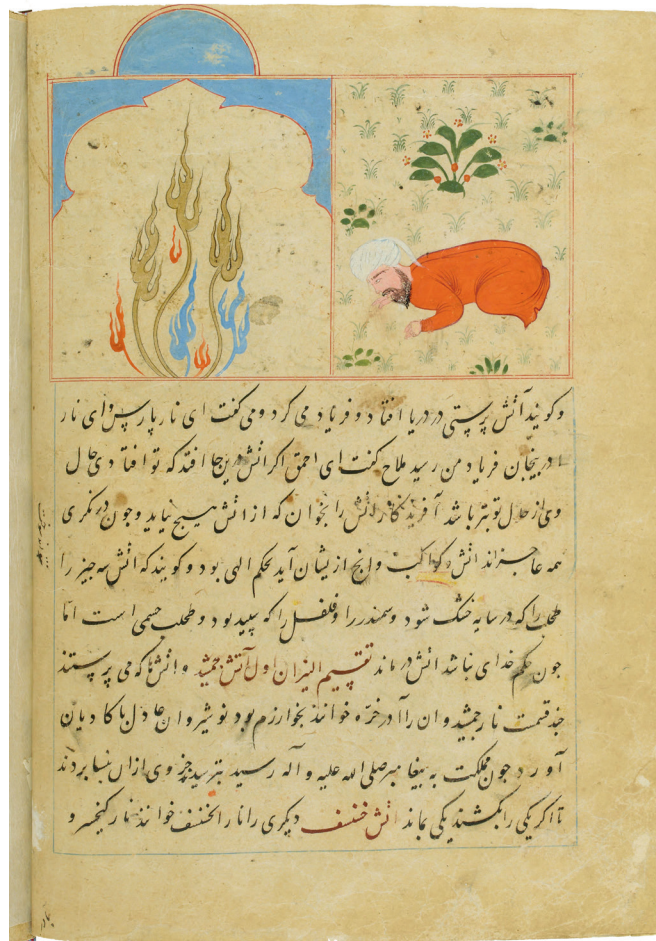 و کویند آتش پرستی در دریا افتاد و فریاد می کرد و می کفت ای نار پارس و ای نار
ادربیجان فریاد من رسید ملاح کفت ای احمق اکر آتش درین جا افتد که تو افتادی حال
وی از حال تو بتر باشد آفریدکار آتش را بخوان که از آتش هیچ نیاید و جون در نکری
همه عاجزاند آتش و کواکب و انچ ازیشان آید بحکم الهی بود و کویند که اتش سه جیز را
طحلب را که در سایه خشک شود و سمندر را و فلفل را که سپید بود و طحلب جسمی است اما
جون حکم خدای نباشد اتش درماند تقسیم النیران اول آتش جمشید و اتشها که می پرستند
جند قسمت نار جمشید و ان را آدرخره خوانند بخوارزم بود نوشیروان عادل با کادیان
آورد جون مملکت به پیغامبر صلی الله علیه و آله رسید بترسیدند وی ازان بنسا بردند
تا اکر یکی را بکشند یکی بماند اتش خنف دیکری را نار الخنف خوانند نار کیخسرو